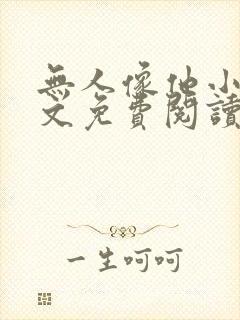 無人像他小
文免費閱讀
一生呵呵